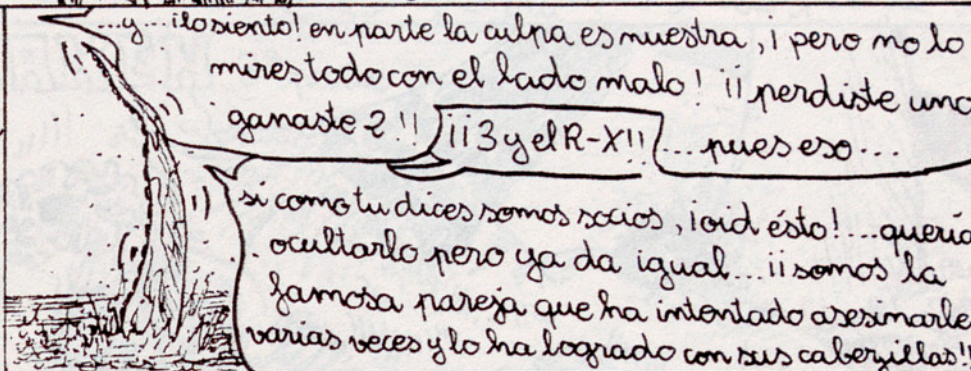 ...y... ¡losiento! en parte la culpa es nuestra, ¡ pero no lo
mires todo con el lado malo! ¡¡ perdiste una
ganaste 2 !!
¡¡3 y el R-X!!
... pues eso ...
si como tu dices somos socios, ¡oid ésto! ... quería
ocultarlo pero ya da igual ... ¡¡ somos la
famosa pareja que ha intentado asesinarle
varias veces y lo ha logrado con sus caberzillas!!